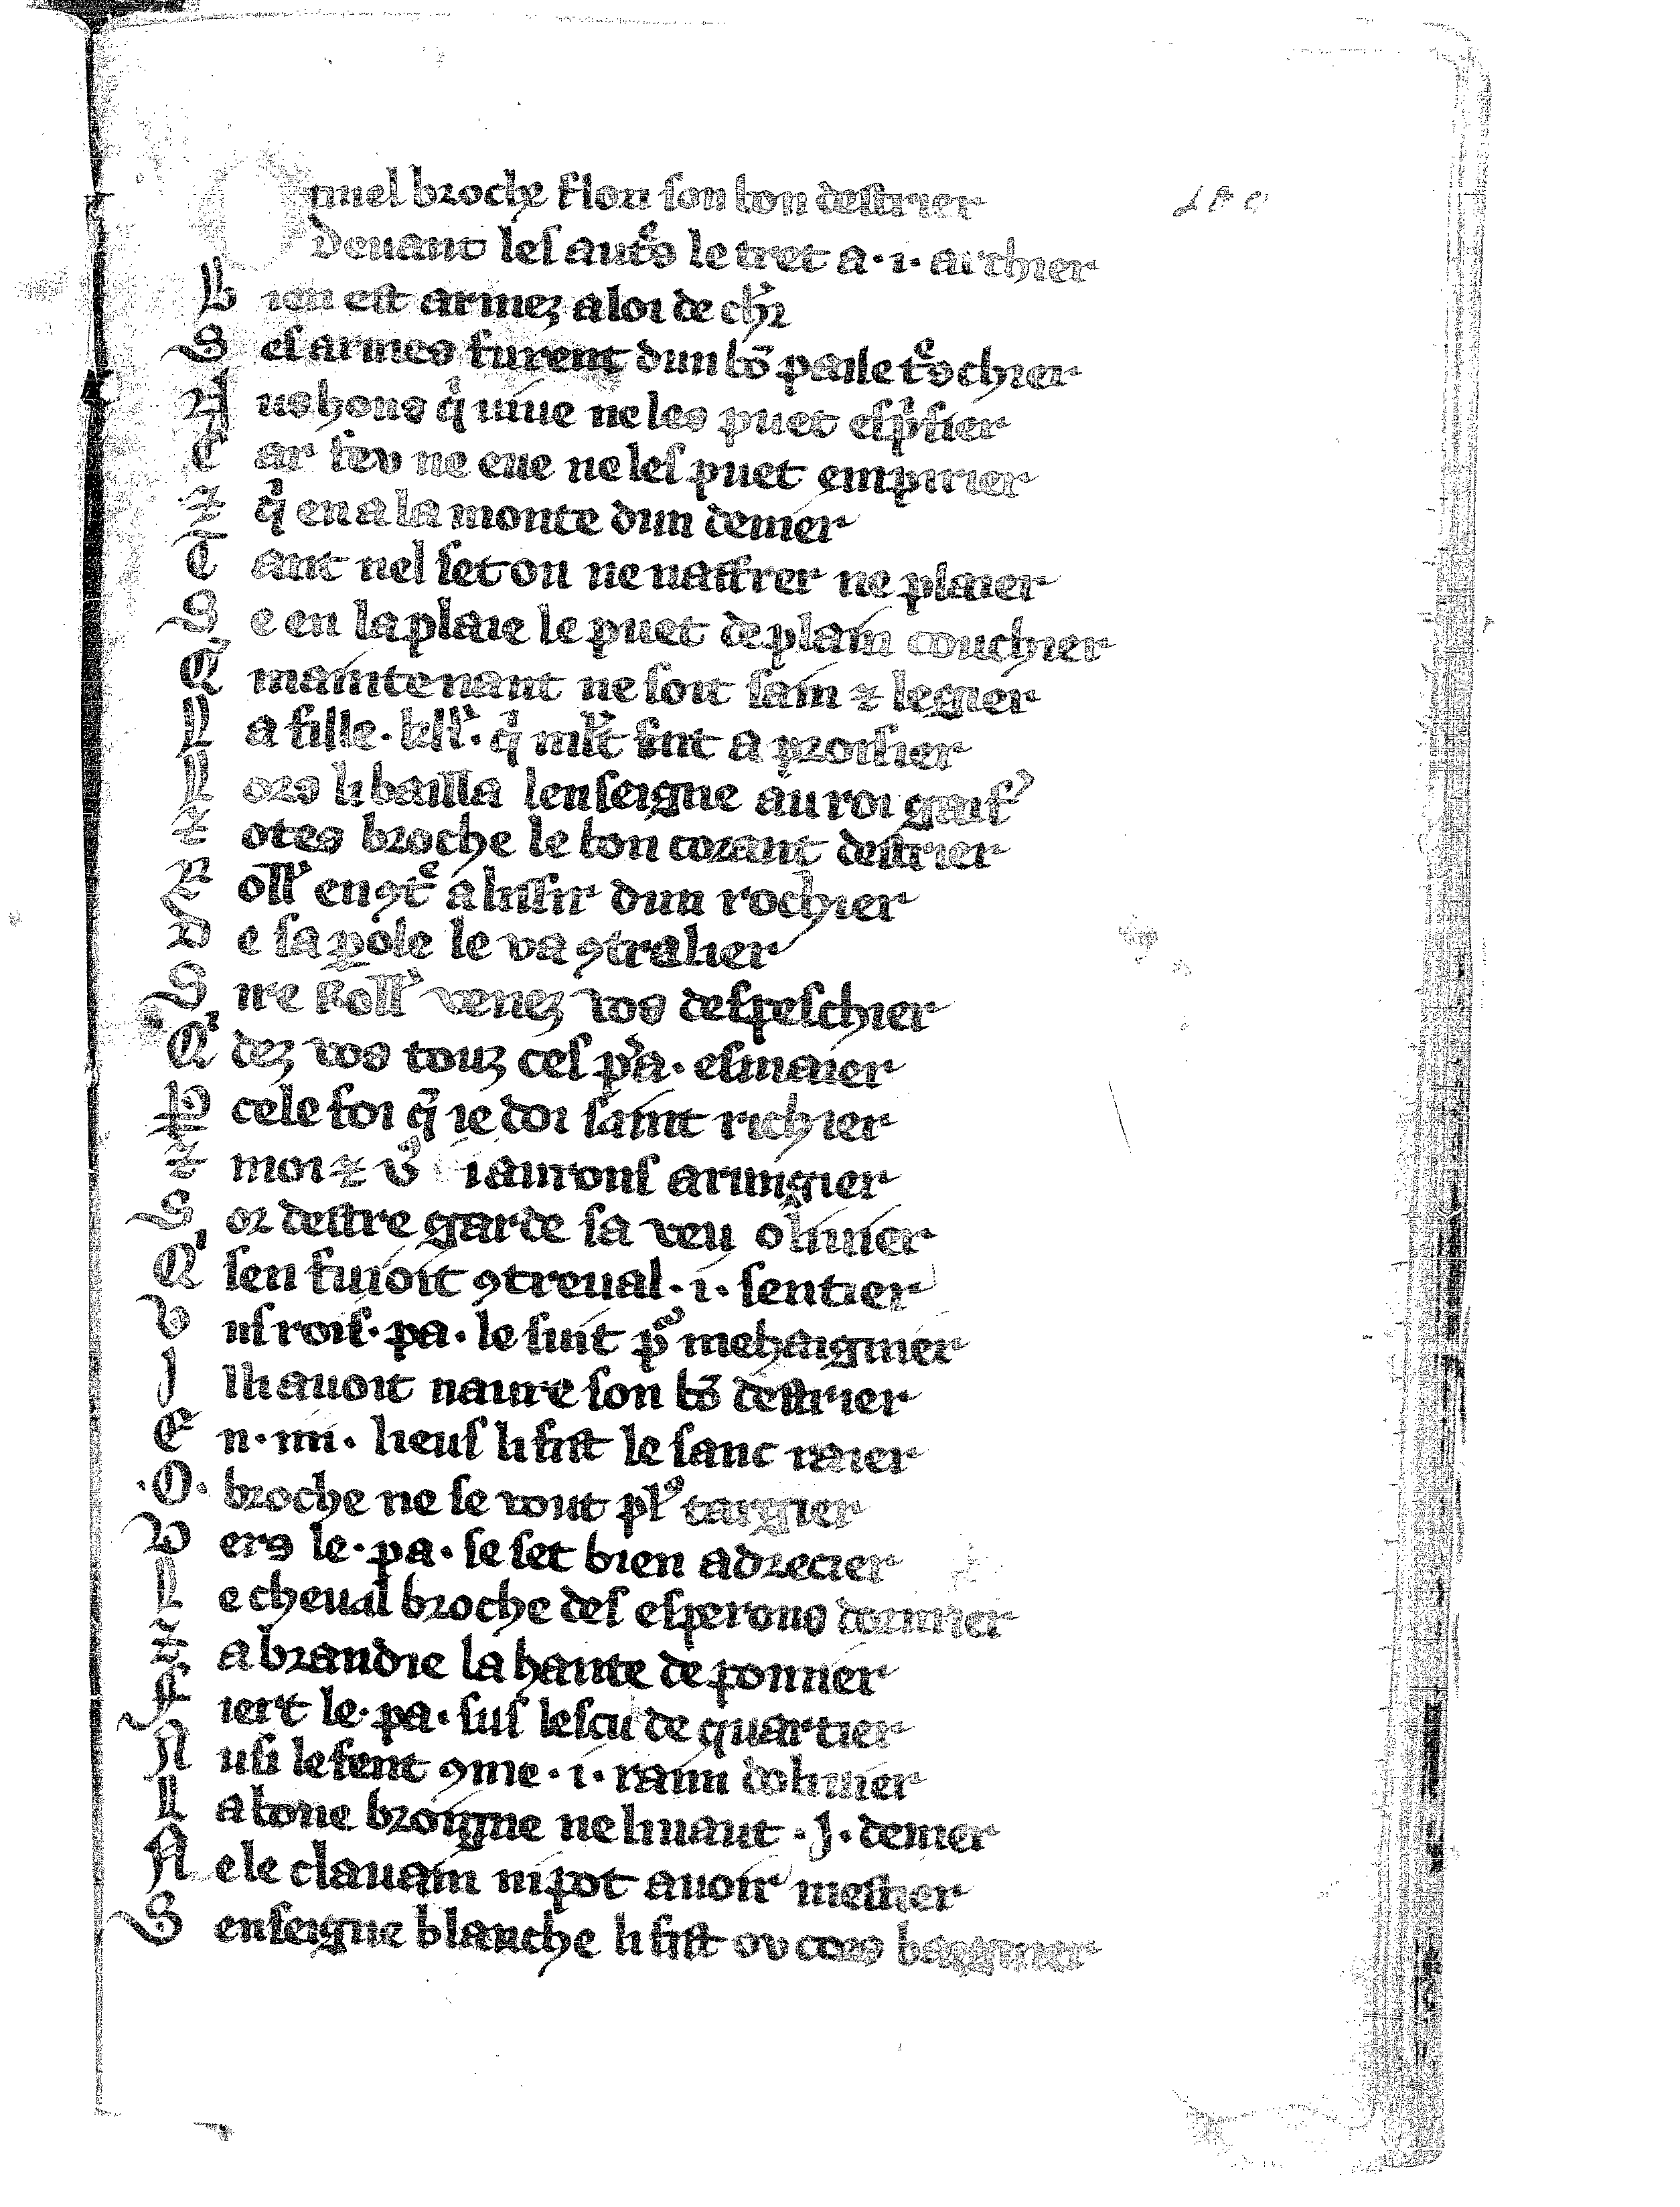 Otuiel broche flori son bon destrier
Deuant les autͤs le tret a .i. archier
B ien est armez a loi de chlr
S es armes furent dun bō paile tͤs chier
N us hons qͥ uiue ne les puet espͥsier
C ar feu ne eue ne les puet empirier
⁊ qͥ en a la monte dun denier
T ant nel set on ne naffrer ne plaier
S e en la plaie le puet de plain couchier
Qͥ maintenant ne soit sain ⁊ legier
L a fille .bell'. qͥ mlt fint a proisier
L ors li bailla lenseigne au roi gauf'
⁊ otes broche le bon corant destrier
R oll' en ꝯtͤ a lissir dun rochier
D e sa pole le va ꝯtralier
S ire Roll' venez vos despeschier
Qͥ dez vos touz ces pͥa. esmaier
P cele foi q̄ ie doi saint richier
⁊ moi ⁊ vͦ i aurons aringier
S or destre garde sa veu oliuier
Qͥ sen fuioit ꝯtreual .i. sentier
V ns rois .pa. le suit pͦ mehaignier
J l li auoit naure son bō destrier
E n .iiii. lieus li fist le sanc raier
.O. broche ne se vout plꝰ targier
V ers le .pa. se set bien adrecier
L e cheual broche des esperons dormier
⁊ a brandie la hante de pommier
F iert le .pa. sus lescu de quartier
A usi le fent ꝯme .i. raim doliuier
L a bone broigne ne li uaut .j. denier
N e le clauain ni pot auoir mestier
S enseigne blanche li fist ou cors baignier